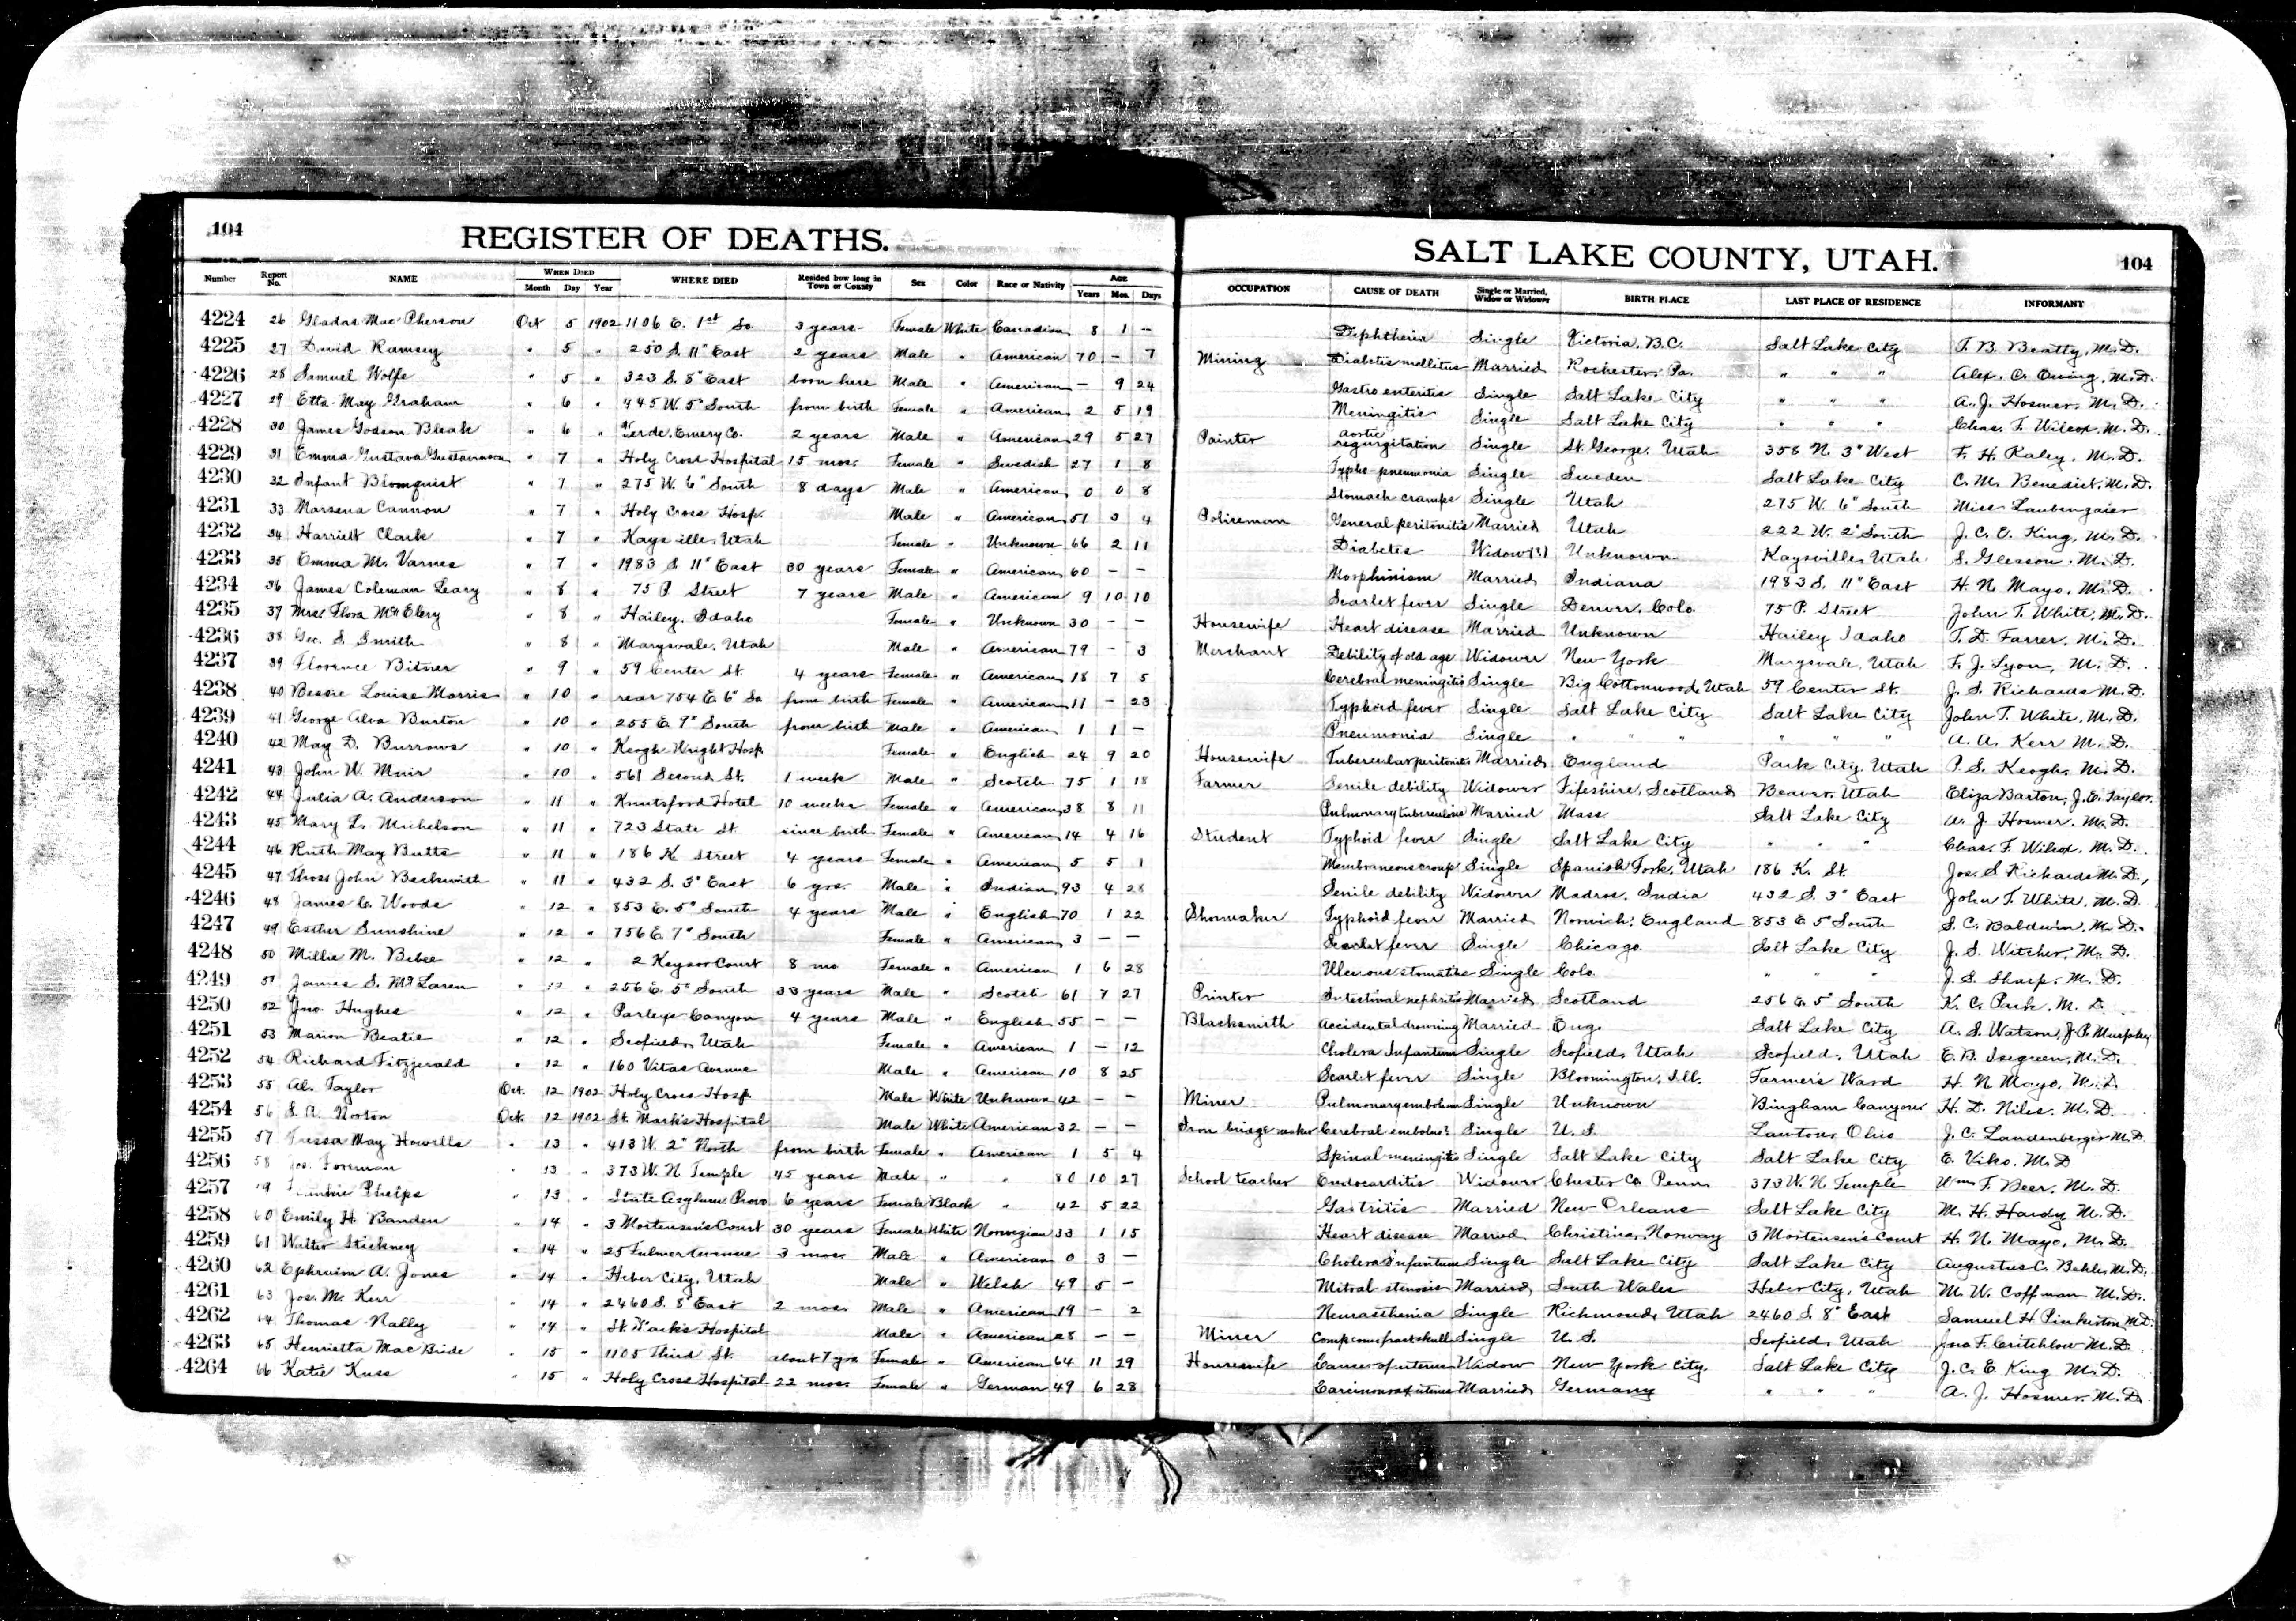 104
REGISTER OF DEATHS.
SALT LAKE COUNTY, UTAH.
104
Number Report No. NAME WHEN DIED Month Day Year WHERE DIED Resided how long in Town or County Sex Color Race or Nativity AGE Years Mos. Days OCCUPATION CAUSE OF DEATH Single or Married, Widow or Widower BIRTH PLACE LAST PLACE OF RESIDENCE INFORMANT
4224 26 Gladas MacPherson Oct 5 1902 1106 E. 1st So 3 years Female White Canadian 8 1 – Diphtheria Single Victoria, B.C. Salt Lake City T. B. Beatty, M.D.
4225 27 David Ramsey " 5 " 250 S. 11" East 2 years Male " American 70 – 7 Mining Diabetis mellitus Married Rochester, Pa. " " " Alex. C. Ewing, M.D.
4226 28 Samuel Wolfe " 5 " 323 S. 8" East born here Male " American – 9 24 Gastro enteritis Single Salt Lake City " " " A. J. Hosmer, M.D.
4227 29 Etta May Graham " 6 " 445 W. 5" South from birth Female " American 2 5 19 Meningitis Single Salt Lake City " " " Chas. F. Wilcox, M.D.
4228 30 James Godson Bleak " 6 " Emery Co. 2 years Male " American 29 5 27 Painter aortic regurgitation Single St. George, Utah 358 N. 3" West F. H. Raley, M.D.
4229 31 Emma Gustava Gustavason " 7 " Holy Cross Hospital 15 mos. Female " Swedish 27 1 8 Typho-pneumonia Single Sweden Salt Lake City C. M. Benedict, M.D.
4230 32 Infant Blomquist " 7 " 275 W. 6" South 8 days Male " American 0 0 8 Stomach cramps Single Utah 275 W. 6" South Miss
4231 33 Marsena Cannon " 7 " Holy Cross Hosp. Male " American 51 3 4 Policeman General peritonitis Married Utah 222 W. 2" South J. C. E. King, M.D.
4232 34 Harriett Clark " 7 " Kaysville, Utah Female " Unknown 66 2 11 Diabetes Widow(?) Unknown Kaysville, Utah S. Gleason, M.D.
4233 35 Emma M. Varnes " 7 " 1983 S 11" East 30 years Female " American 60 – – Morphinism Married Indiana 1983 S. 11" East H. N. Mayo, M.D.
4234 36 James Coleman Leary " 8 " 75 P Street 7 years Male " American 9 10 10 Scarlet fever Single Denver, Colo. 75 P. Street John T. White, M.D.
4235 37 Mrs. Flora McElery " 8 " Hailey, Idaho Female " Unknown 30 – – Housewife Heart disease Married Unknown Hailey Idaho T. D. Farrer, M.D.
4236 38 Geo. S. Smith " 8 " Marysvale, Utah Male " American 79 – 3 Merchant Debility of old age Widower New York Marysvale, Utah F. J. Lyon, M.D.
4237 39 Florence Bitner " 9 " 59 Center St. 4 years Female " American 18 7 5 Cerebral meningitis Single Big Cottonwood, Utah 59 Center St. J. S. Richards M.D.
4238 40 Bessie Louise Morris " 10 " rear 754 E. 6" So from birth Female " American 11 – 23 Typhoid fever Single Salt Lake City Salt Lake City John T. White, M.D.
4239 41 George Alva Burton " 10 " 255 E. 7" South from birth Male " American 1 1 – Pneumonia Single " " " " " " A. A. Kerr M.D.
4240 42 May D. Burrows " 10 " Keogh Wright Hosp. Female " English 24 9 20 Housewife Tubercular peritonitis Married England Park City, Utah P. S. Keogh, M.D.
4241 43 John W. Muir " 10 " 561 Second St. 1 week Male " Scotch 75 1 18 Farmer Senile debility Widower Fifeshire, Scotland Beaver, Utah Eliza Barton, J. E. Taylor.
4242 44 Julia A. Anderson " 11 " Knutsford Hotel 10 weeks Female " American 38 8 11 Pulmonary tuberculosis Married Mass. Salt Lake City A. J. Hosmer, M.D.
4243 45 Mary L. Michelson " 11 " 723 State St. since birth Female " American 14 4 16 Student Typhoid fever Single Salt Lake City " " " Chas. F. Wilcox, M.D.
4244 46 Ruth May Butts " 11 " 186 K. Street 4 years Female " American 5 5 1 Membraneous croup Single Spanish Fork, Utah 186 K. St. Jos. S. Richards M.D.
4245 47 Thos. John Beckwith " 11 " 432 S. 3" East 6 yrs. Male " Indian 93 4 28 Senile debility Widower Madras, India 432 S. 3" East John T. White, M.D.
4246 48 James C. Woods " 12 " 853 E. 5" South 4 years Male " English 70 1 22 Shomaker Typhoid fever Married Norwich, England 853 E 5" South S. C. Baldwin, M.D.
4247 49 Esther Sunshine " 12 " 756 E. 7" South Female " American 3 – – Scarlet fever Single Chicago Salt Lake City J. S. Witcher, M.D.
4248 50 Millie M. Bebee " 12 " 2 Keysor Court 8 mo Female " American 1 6 28 Ulcerous stomatitis Single Colo. " " " J. S. Sharp, M.D.
4249 51 James S. McLaren " 12 " 256 E. 5" South 33 years Male " Scotch 61 7 27 Printer Intestinal nephritis Married Scotland 256 E. 5" South K. C. Park, M.D.
4250 52 Jno. Hughes " 12 " Parleys Canyon 4 years Male " English 55 – – Blacksmith Accidental drowning Married Eng. Salt Lake City A. S. Watson, J.P.
4251 53 Marion Beatie " 12 " Scofield, Utah Female " American 1 – 12 Cholera Infantum Single Scofield, Utah Scofield, Utah E. B. Isgreen, M.D.
4252 54 Richard Fitzgerald " 12 " 160 Vitas Avenue Male " American 10 8 25 Scarlet fever Single Bloomington, Ill. Farmers Ward H. N. Mayo, M.D.
4253 55 Al. Taylor Oct. 12 1902 Holy Cross Hosp. Male White Unknown 42 – – Miner Pulmonary embolism Single Unknown Bingham Canyon H. D. Niles, M.D.
4254 56 S. A. Norton Oct. 12 1902 St. Mark's Hospital Male White American 32 – – Iron bridge maker Cerebral embolus? Single U. S. Ohio J. C. Landenberger M.D.
4255 57 Tressa May Howells " 13 " 413 W. 2" North from birth Female " American 1 5 4 Spinal meningitis Single Salt Lake City Salt Lake City E. Viko, M.D.
4256 58 Jos. Foreman " 13 " 373 W. N. Temple 45 years Male " " 80 10 27 School teacher Endocarditis Widower Chester Co Penn. 373 W. N. Temple Wm. F. Beer, M.D.
4257 Phelps " 13 " State Asylum Provo 6 years Female Black " 42 5 22 Gastritis Married New Orleans Salt Lake City M. H. Hardy M.D.
4258 60 Emily H. Banden " 14 " 3 Mortensen's Court 30 years Female White Norwegian 33 1 15 Heart disease Married Christina, Norway 3 Mortensen's Court H. N. Mayo, M.D.
4259 61 Walter Stickney " 14 " 25 Fulmer Avenue 3 mos. Male " American 0 3 – Cholera Infantum Single Salt Lake City Salt Lake City Augustus C. Behle, M.D.
4260 62 Ephraim A. Jones " 14 " Heber City, Utah Male " Welsh 49 5 – Mitral stenosis Married South Wales Heber City, Utah M. W. Coffman M.D.
4261 63 Jos. M. Kerr " 14 " 2460 S. 8" East 2 mos. Male " American 19 – 2 Neurasthenia Single Richmond, Utah 2460 S. 8" East Samuel H Pinkerton M.D.
4262 64 Thomas Nally " 14 " St. Mark's Hospital Male " American 28 – – Miner Comp comm fract skull Single U. S. Scofield, Utah Jno F. Critchlow M.D.
4263 65 Henrietta MacBride " 15 " 1105 Third St. about 7 yrs Female " American 64 11 29 Housewife Cancer of uterus Widow New York City. Salt Lake City J. C. E King M.D.
4264 66 Katie Kuss " 15 " Holy Cross Hospital 22 mos. Female " German 49 6 28 Carcinoma of uterus Married Germany " " " A. J. Hosmer, M.D.